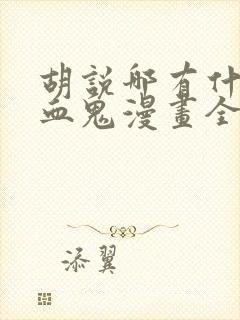 胡說哪有什
血鬼漫畫全
添翼